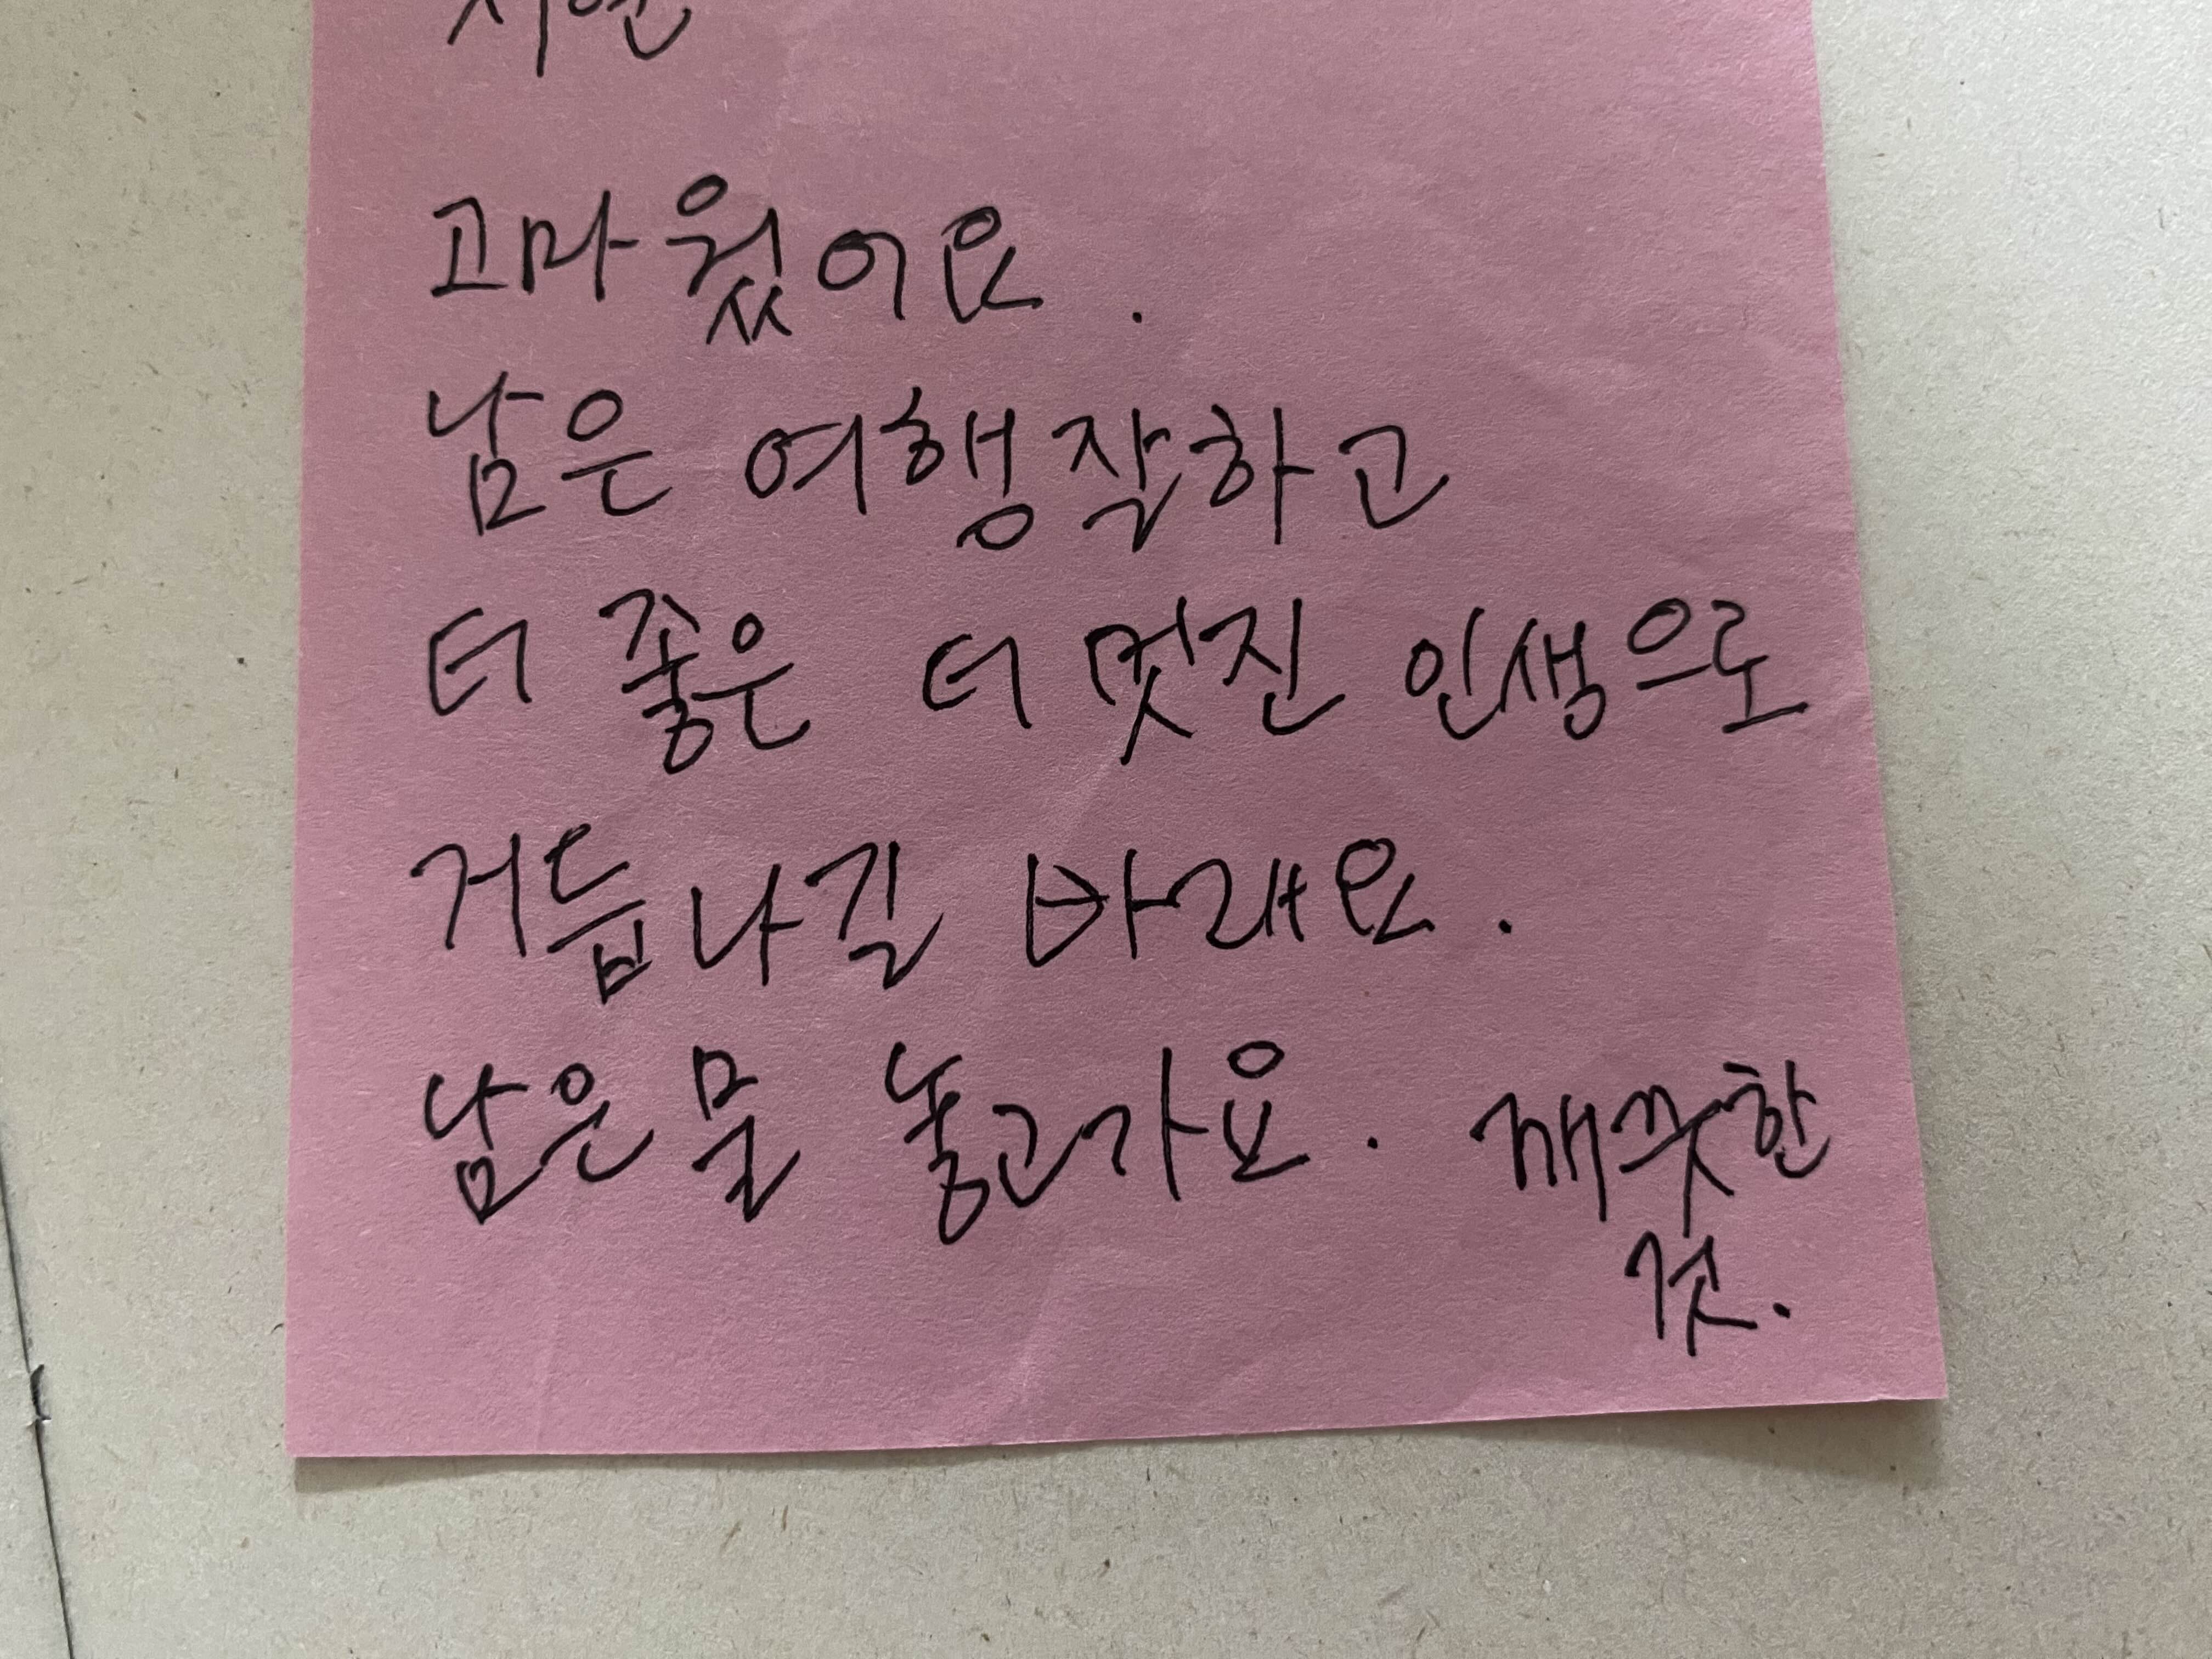 고마웠어요.
남은 여행잘하고
더 좋은 더 멋진 인생으로
거듭나길 바래요.
남은물 놓고가요. 깨끗한
것.